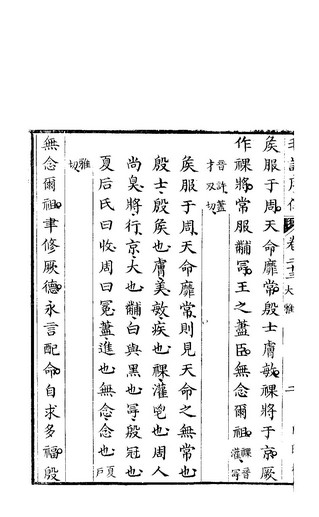 矦服于周天命靡常殷士膚敏祼將于京厥
作祼將常服黼冔王之藎臣無念爾祖祼音灌冔
音許藎
才刃切
矦服于周天命靡常則見天命之無常也
殷士殷矦也膚美敏疾也祼灌鬯也周人
尚臭將行京大也黼白與黑也冔殷冠也
夏后氏曰收周曰冕藎進也無念念也夏戶
雅
切
無念爾祖聿修厥德永言配命自求多福殷
卷二十三 大雅